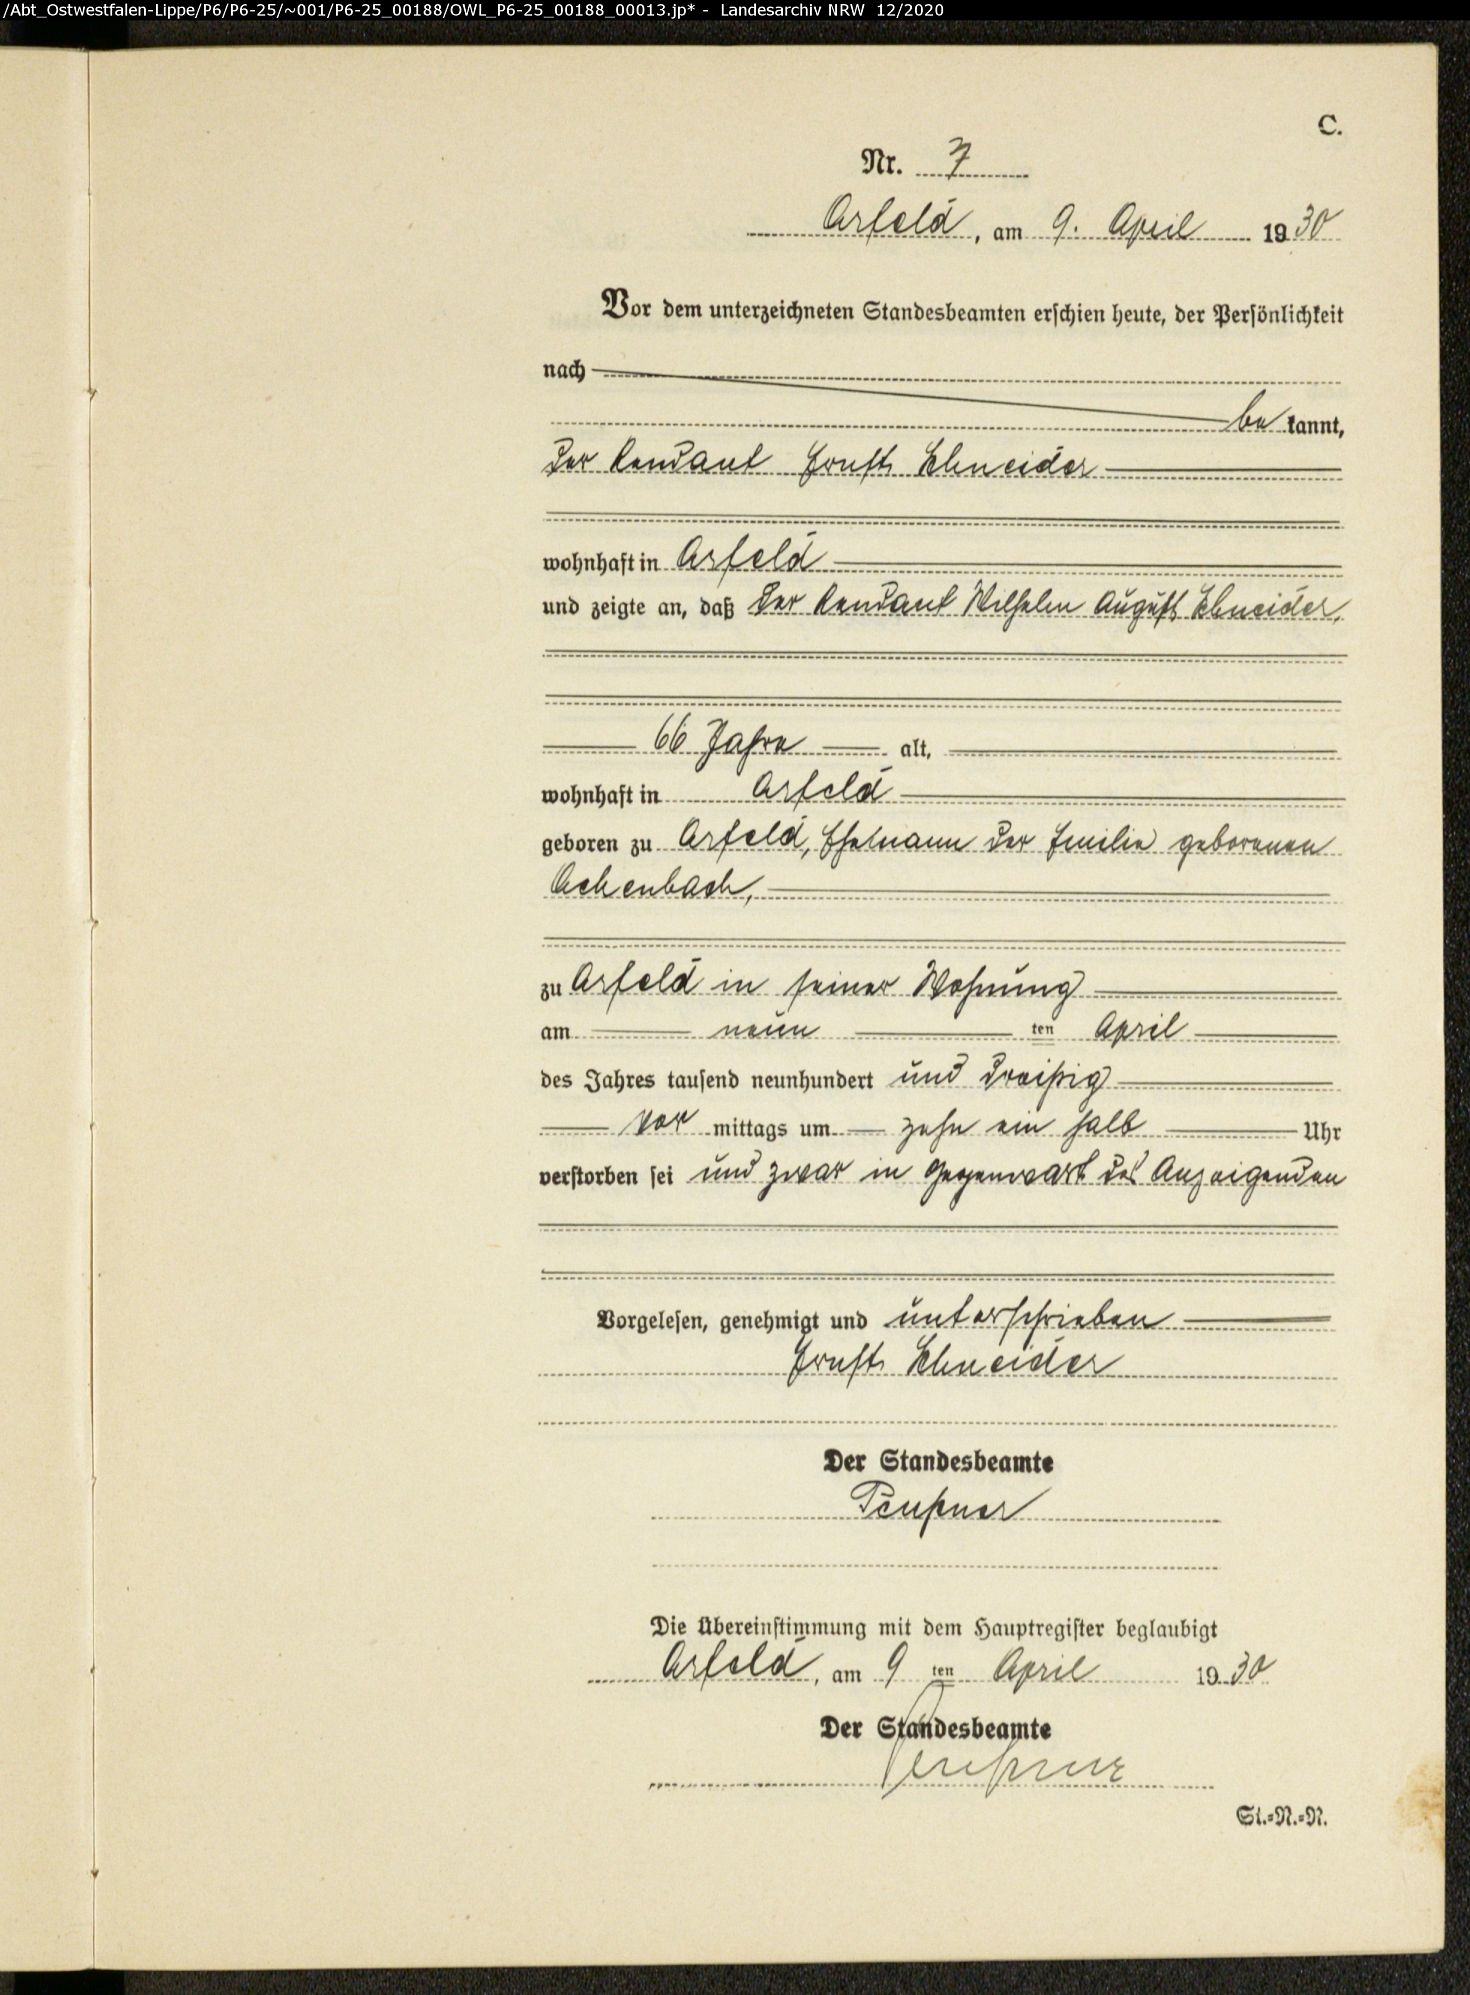 /Abt_Ostwestfalen-Lippe/P6/P6-25/~001/P6-25_00188/OWL_P6-25_00188_00013.jp* - Landesarchiv NRW 12/2020
C.
Nr. 7
Arfeld, am 9. April 1930
Vor dem unterzeichneten Standesbeamten erschien heute, der Persönlichkeit
nach
be kannt,
der Rendant Ernst Schneider
wohnhaft in Arfeld
und zeigte an, daß der Rendant Wilhelm August Schneider,
66 Jahre alt,
wohnhaft in Arfeld
geboren zu Arfeld, Ehemann der Emilie geborenen
Achenbach,
zu Arfeld in seiner Wohnung
am neun ten April
des Jahres tausend neunhundert und dreißig
vor mittags um zehn ein halb Uhr
verstorben sei und zwar in Gegenwart des Anzeigenden
Vorgelesen, genehmigt und unterschrieben
Ernst Schneider
Der Standesbeamte
Die Übereinstimmung mit dem Hauptregister beglaubigt
Arfeld, am 9 ten April 1930
Der Standesbeamte
St.=N.=N.